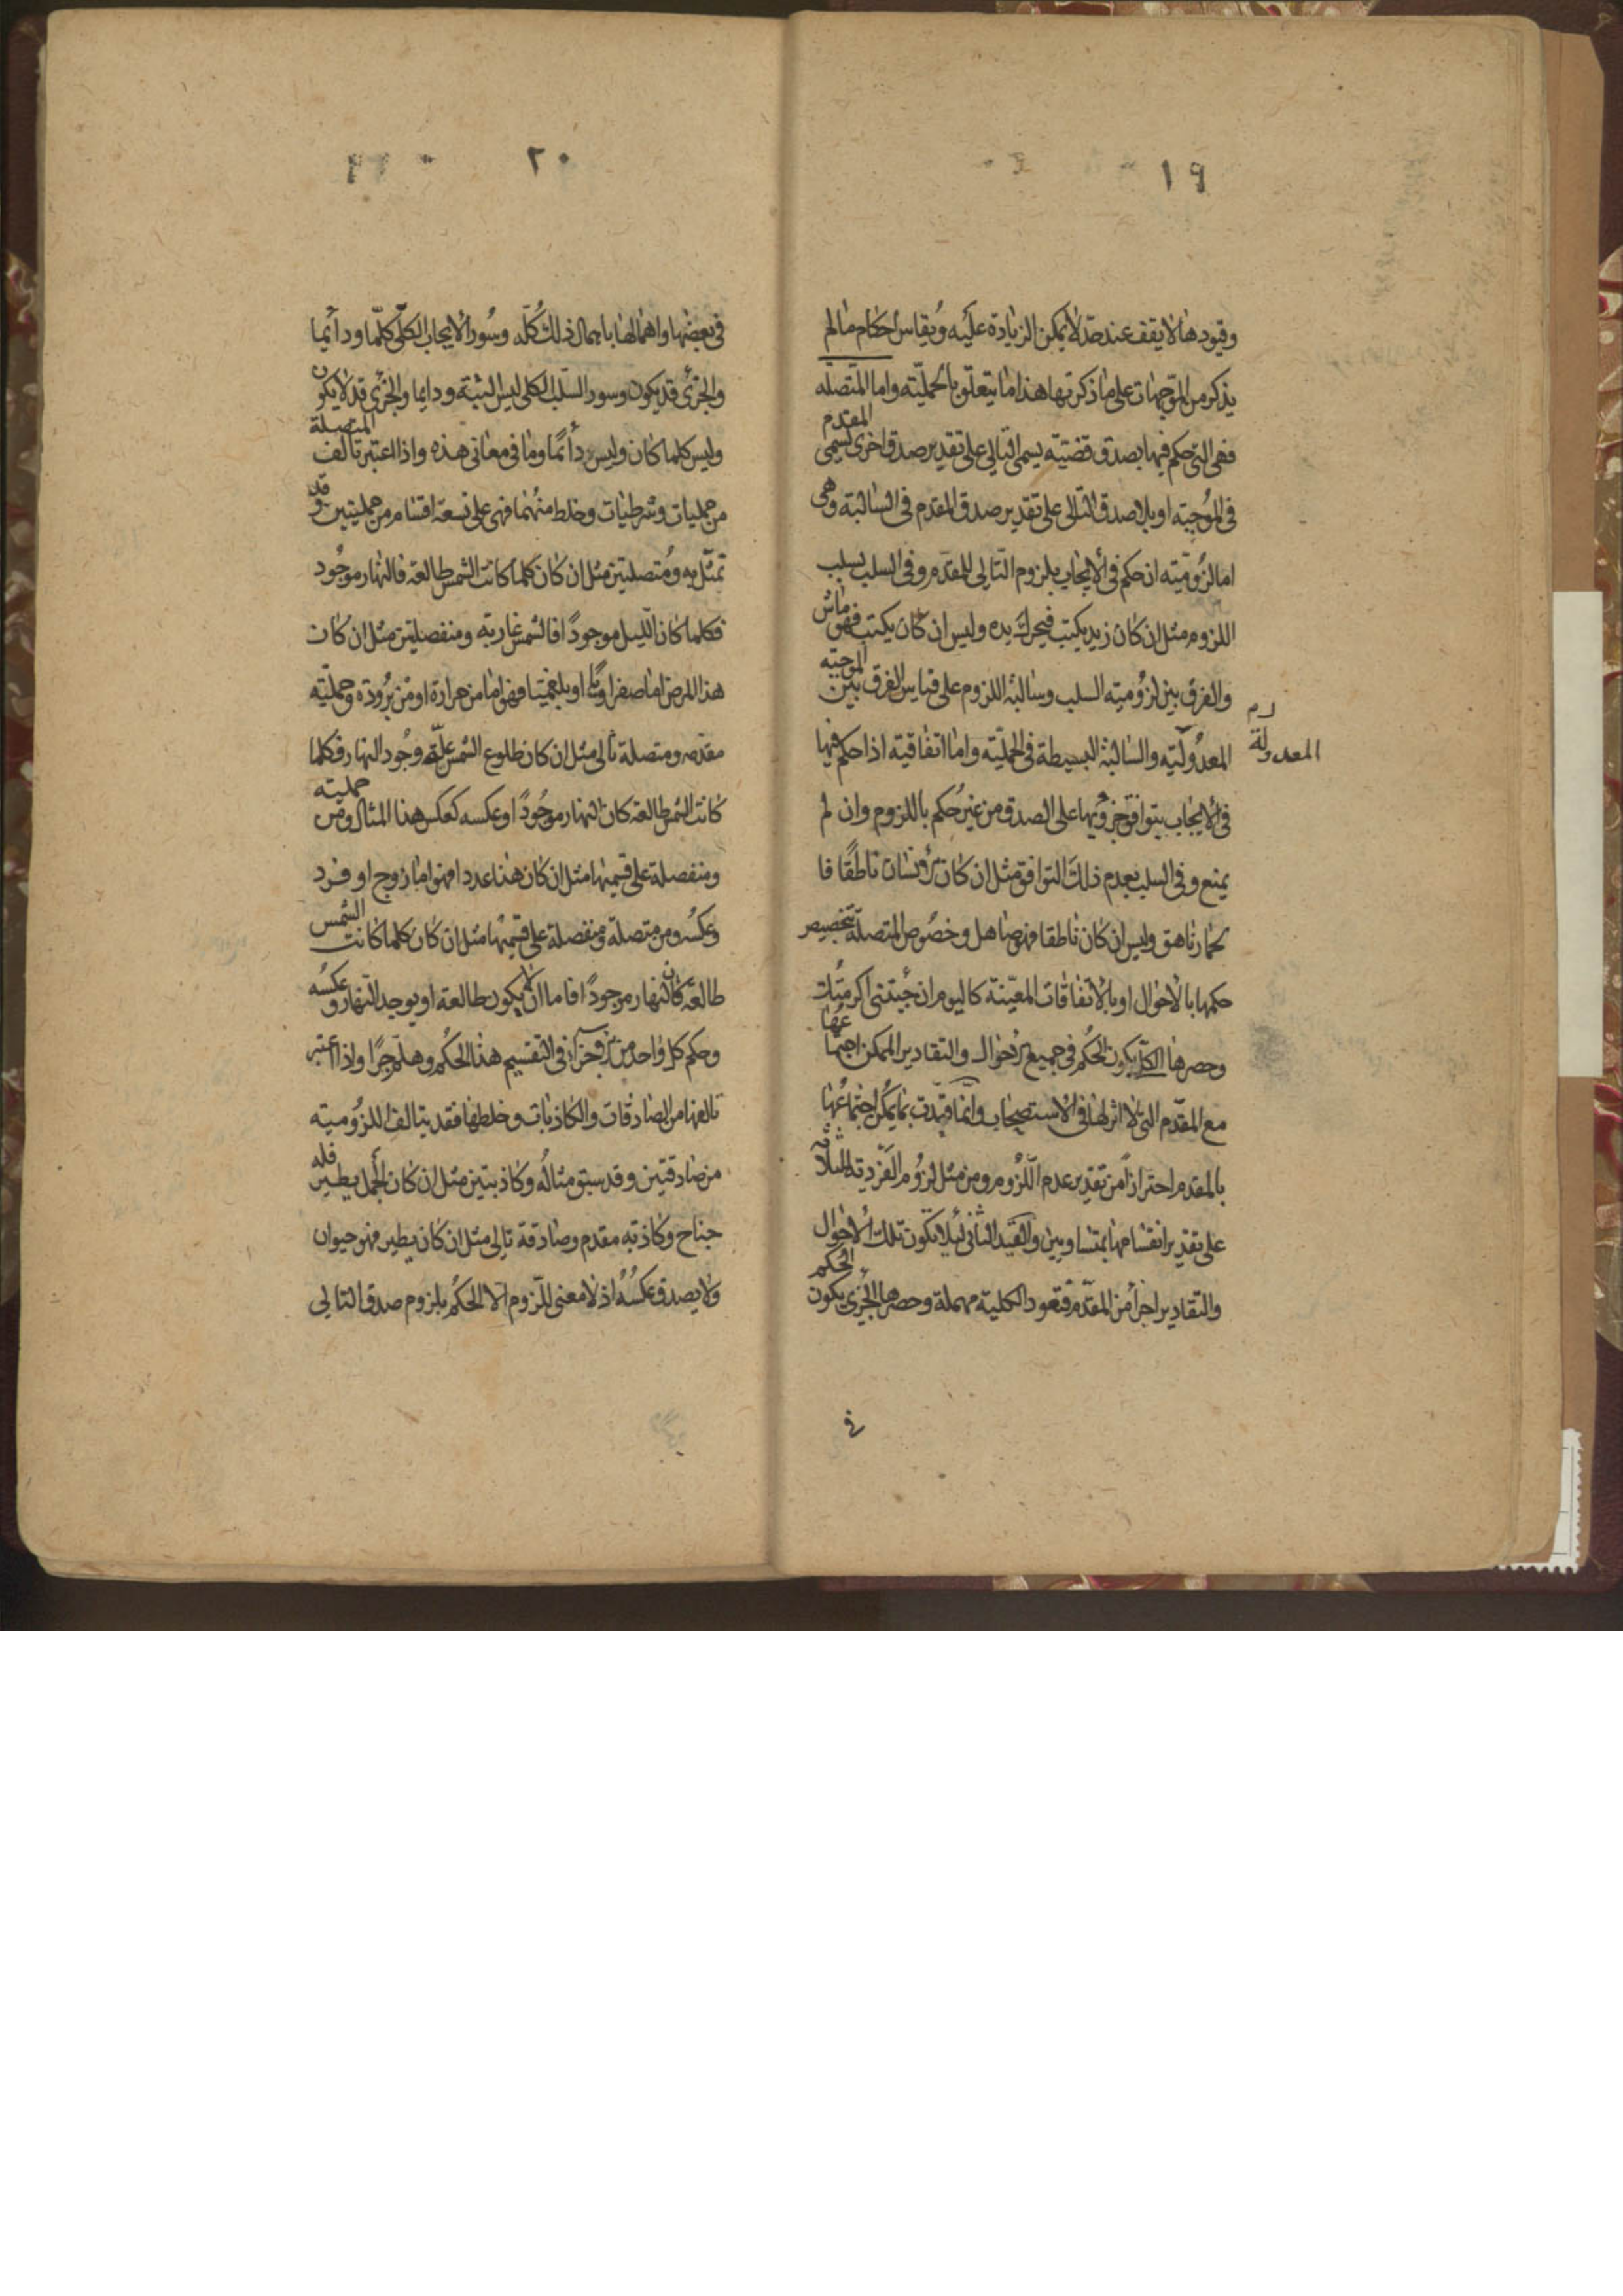 ١٩
وقيودها لا يقف عند حد لا يمكن الزيادة عليه ويقاس احكام ما لم
يذكر من الموجهات على ما ذكر تها هذا ما يتعلق بالحملية واما المتصلة
فهى التى حكم فيها بصدق قضية يسمى التالى على تقدير صدق اخرى تسمى المقدم
فى الموجبة او بلا صدق التالى على تقدير صدق المقدم فى السالبة وهى
اما لزومية ان حكم فى الايجاب بلزوم التالى للمقدم وفى السلب بسلب
اللزوم مثل ان كان زيد يكتب فيحرك يده وليس ان كان يكتب فهو ماش
والفرق بين لزومية السلب وسالبة اللزوم على قياس الفرق بين الموجبة
المعدولية والسالبة البسيطة فى الحملية واما اتفاقية اذا حكم فيها
المعدولة
فى الايجاب بتوافق جزويها على الصدق من غير حكم باللزوم وان لم
يمنع وفى السلب بعدم ذلك التوافق مثل ان كان الانسان ناطقا فا
لحمار ناهق وليس ان كان ناطقا فهو صاهل وخصوص المتصلة بتخصيص
حكمها بالاحوال او بالاتفاقات المعينة كاليوم ان جيتنى اكرمتك
وحصرها الكلى بكون الحكم فى جميع الاحوال والتقادير الممكن اجتماعها
مع المقدم التى لا اثر لها فى الاستصحاب وانما قيدت بما يمكن اجتماعها
بالمقدم احترازا من تقدير عدم اللزوم ومن مثل لزوم الفردية للثلاثة
على تقدير انقسامها بمتساويين والقيد الثانى ليلا تكون تلك الاحوال
والتقادير اجزأ من المقدم فتعود الكلية مهملة وحصرها الجزى بكون الحكم
فى
٢٠
فى بعضها واهمالها باجمال ذلك كله وسور الايجاب الكلى كلما ودايما
والجزى قد يكون وسور السلب الكلى ليس البتة ودايما والجزى قد لا يكون
وليس كلما كان وليس دأيما وما فى معانى هذه واذا اعتبر تالف المتصلة
من حمليات وشرطيات وخلط منهما فهى على تسعة اقسام من حمليتين وقد
تمثل به ومتصلتين مثل ان كان كلما كانت الشمس طالعة فالنهار موجود
فكلما كان الليل موجودا فالشمس غاربة ومنفصلتين مثل ان كان
هذا المرض اما صفراويا او بلغميا فهو اما من حرارة او من برودة وحملية
مقدمه ومتصلة تالى مثل ان كان طلوع الشمس علة وجود النهار فكلما
كانت الشمس طالعة كان النهار موجودا وعكسه كعكس هذا المثال ومن حملية
ومنفصلة على قسميها مثل ان كان هذا عددا فهو اما زوج او فرد
وعكسه ومن متصلة ومنفصلة على قسميها مثل ان كان كلما كانت الشمس
طالعة كان النهار موجودا فاما ان لا يكون طالعة او يوجد النهار وعكسه
وحكم كل واحد من جزوى الجزأ فى التقسيم هذا الحكم وهلم جرا واذا اعتبر
تالفها من الصادقات والكاذبات وخلطها فقد يتالف اللزومية
من صادقتين وقد سبق مثاله وكاذبتين مثل ان كان الجمل يطير فله
جناح وكاذبة مقدم وصادقة تالى مثل ان كان يطير فهو حيوان
ولا يصدق عكسه اذ لا معنى للزوم الا الحكم بلزوم صدق التالى